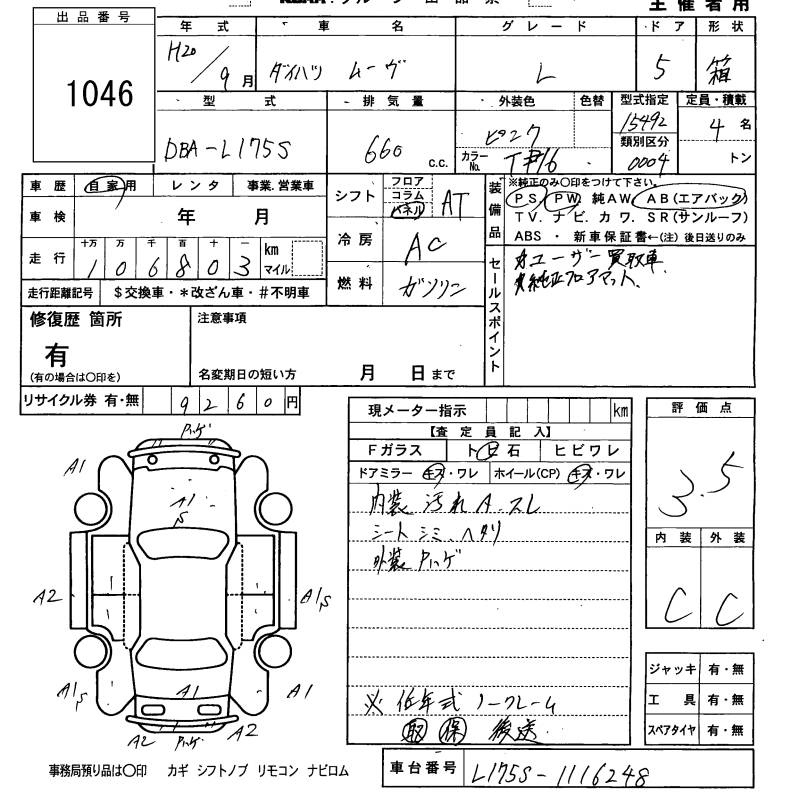 主催者用
出品番号
1046
年式 車名 グレード ドア 形状
H20/9月 ダイハツ ムーヴ L 5 箱
型式 排気量 外装色 色替 型式指定 定員・積載
DBA-L175S 660 c.c. ピンク 15492 4名
カラーNo. T#16 類別区分 0004 トン
車歴 自家用 レンタ 事業.営業車
車検 年 月
走行 十万 万 千 百 十 一 km マイル
1 0 6 8 0 3
走行距離記号 $交換車・*改ざん車・#不明車
シフト フロア コラム パネル AT
冷房 AC
燃料 ガソリン
装備品
※純正のみ〇印をつけて下さい。
PS. PW. 純AW. AB(エアバック)
TV. ナビ. カワ. SR(サンルーフ)
ABS ・ 新車保証書←(注)後日送りのみ
セールスポイント
ユーザー買取車
純正フロアマット.
修復歴 箇所
有
(有の場合は〇印を)
注意事項
名変期日の短い方 月 日まで
リサイクル券 有・無 9260円
現メーター指示 km
【査定員記入】
Fガラス ト日石 ヒビワレ
ドアミラー キズ・ワレ ホイール(CP) キズ・ワレ
内装 汚れ A.スレ
シート シミ.ヘタリ
外装 ハゲ
※ 低年式 ノークレーム
取 保 後送
評価点
3.5
内装 外装
C C
ジャッキ 有・無
工具 有・無
スペアタイヤ 有・無
車台番号 L175S-1116248
ハゲ
A1
A1
S
A2
A1S
A1S
A1
A1
A2
A2
ハゲ
事務局預り品は〇印 カギ シフトノブ リモコン ナビロム